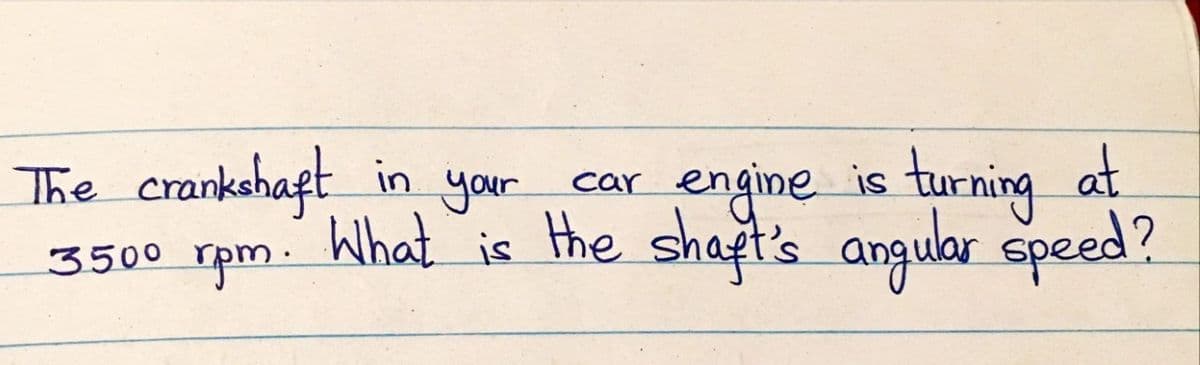 The crankshaft in your car engine is turning at
3500 rpm. What is the shaft's angular speed?